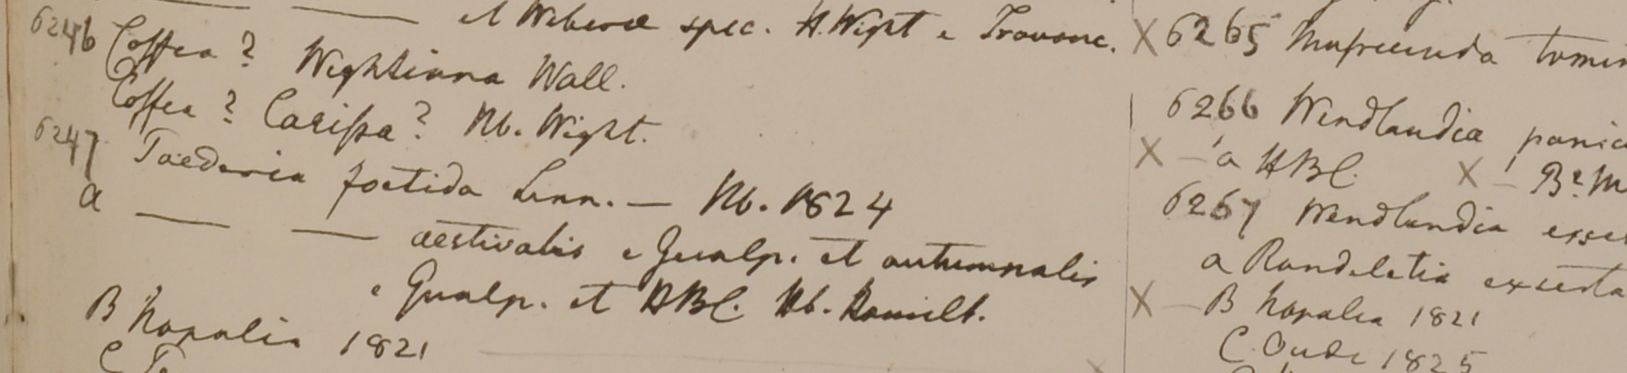 et Weberae spec. H. Wight e Travanc.
6246 Coffea? Wightiana Wall.
Coffea? Carissa? Hb. Wight.
6247 Paederia foetida Linn. — Hb. 1824
a — — aestivalis e Gualp. et autumnalis
e Gualp. et HBC. Hb. Hamilt.
B Napalia 1821
C
X 6265 Mussaenda tomen
6266 Wendlandia panic
X — a HBC. X — B
6267 Wendlandia exser
a Rondeletia exserta
X — B Napalia 1821
C. Oude 1825